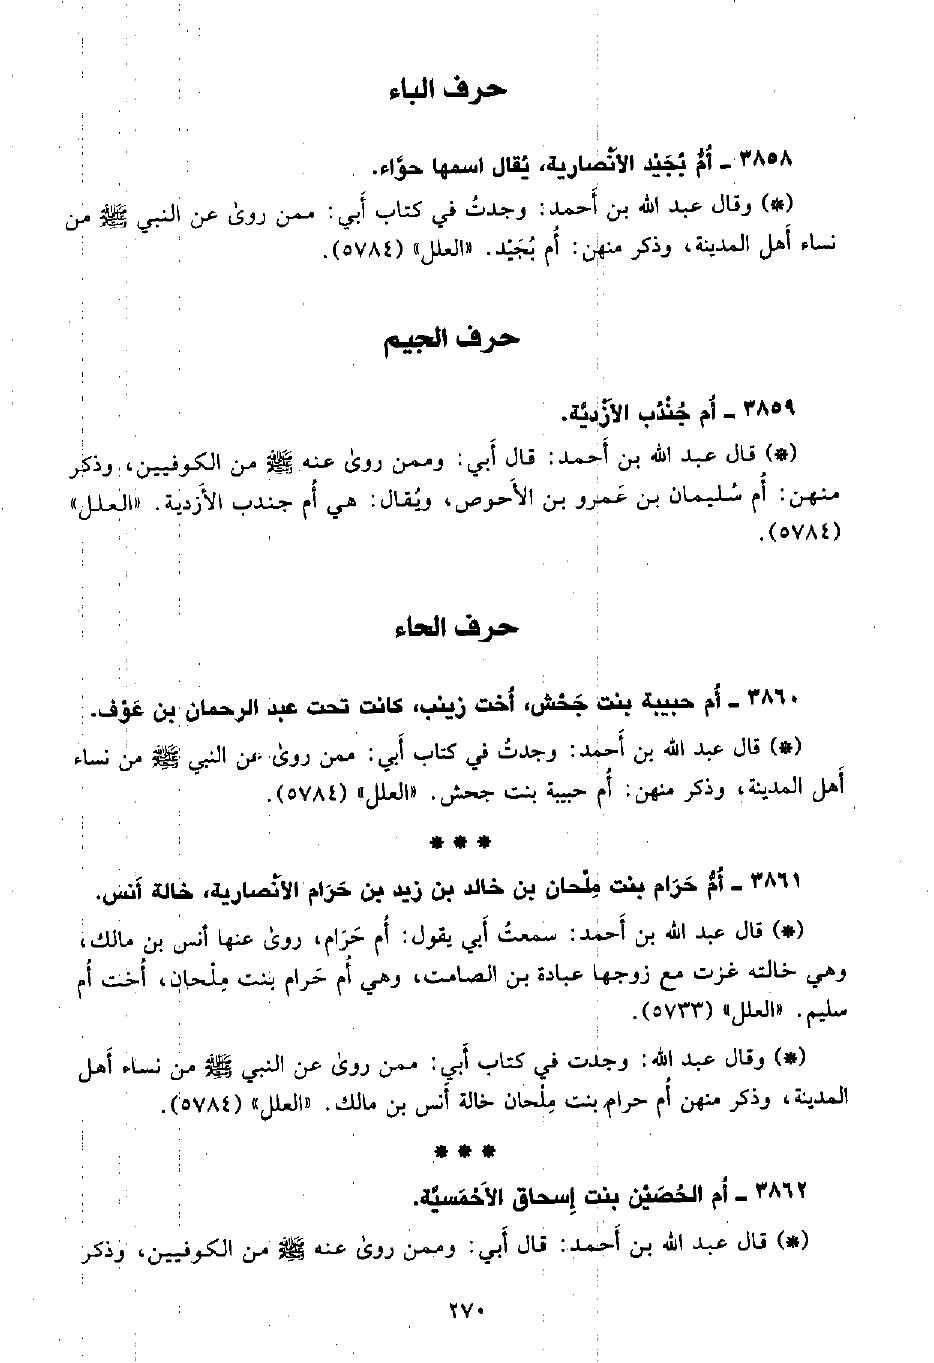 حرف الباء
٣٨٥٨ ـ أُمُّ بُجَيْد الأنْصارية، يُقال اسمها حوَّاء.
(*) وقال عبد الله بن أَحمد: وجدتُ في كتاب أَبي: ممن روىٰ عن النبي ﷺ من
نساء أهل المدينة، وذكر منهن: أُم بُجَيْد. «العلل» (٥٧٨٤).
حرف الجيم
٣٨٥٩ ـ أُم جُنْدُب الأزْديَّة.
(*) قال عبد الله بن أَحمد: قال أَبي: وممن روىٰ عنه ﷺ من الكوفيين، وذكر
منهن: أُم سُليمان بن عَمرو بن الأَحوص، ويُقال: هي أُم جندب الأزدية. «العلل»
(٥٧٨٤).
حرف الحاء
٣٨٦٠ ـ أُم حبيبة بنت جَحْش، أُخت زينب، كانت تحت عبد الرحمان بن عَوْف.
(*) قال عبد الله بن أَحمد: وجدتُ في كتاب أَبي: ممن روىٰ عن النبي ﷺ من نساء
أَهل المدينة، وذكر منهن: أُم حبيبة بنت جحش. «العلل» (٥٧٨٤).
***
٣٨٦١ ـ أُمُّ حَرَام بنت مِلْحان بن خالد بن زيد بن حَرَام الأنْصارية، خالة أَنس.
(*) قال عبد الله بن أَحمد: سمعتُ أَبي يقول: أُم حَرَام، روىٰ عنها أنس بن مالك،
وهي خالته غزت مع زوجها عبادة بن الصامت، وهي أُم حَرام بنت مِلْحان، أُخت أُم
سليم. «العلل» (٥٧٣٣).
(*) وقال عبد الله: وجدت في كتاب أَبي: ممن روىٰ عن النبي ﷺ من نساء أهل
المدينة، وذكر منهن أُم حرام بنت مِلْحان خالة أَنس بن مالك. «العلل» (٥٧٨٤).
***
٣٨٦٢ ـ أُم الحُصَيْن بنت إسحاق الأَحْمَسيَّة.
(*) قال عبد الله بن أَحمد: قال أَبي: وممن روىٰ عنه ﷺ من الكوفيين، وذكر
٢٧٠